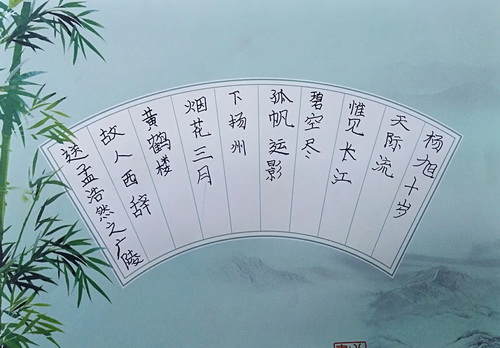 送孟浩然之广陵
故人西辞
黄鹤楼
烟花三月
下扬州
孤帆远影
碧空尽
惟见长江
天际流
杨旭十岁